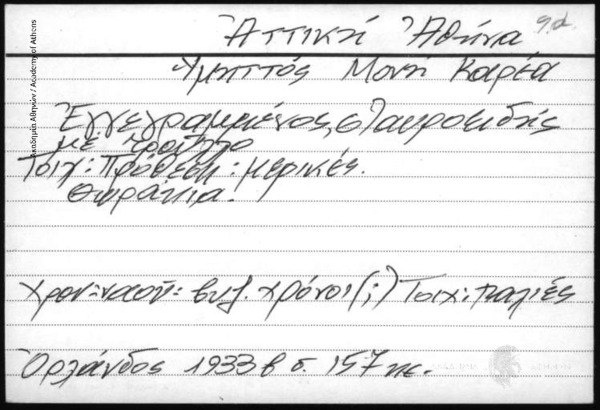 Ἀττική Ἀθήνα
Ὑμηττός Μονή Καρέα
Ἐγγεγραμμένος σταυροειδής
με τροῦλλο
Τοιχ: Πρόθεση: μερικές.
Θωράκια.
Χρον. ναοῦ: βυζ. χρόνοι (;) Τοιχ: παλιές
Ὀρλάνδος 1933β σ. 157 πε.
Ακαδημία Αθηνών / Academy of Athens